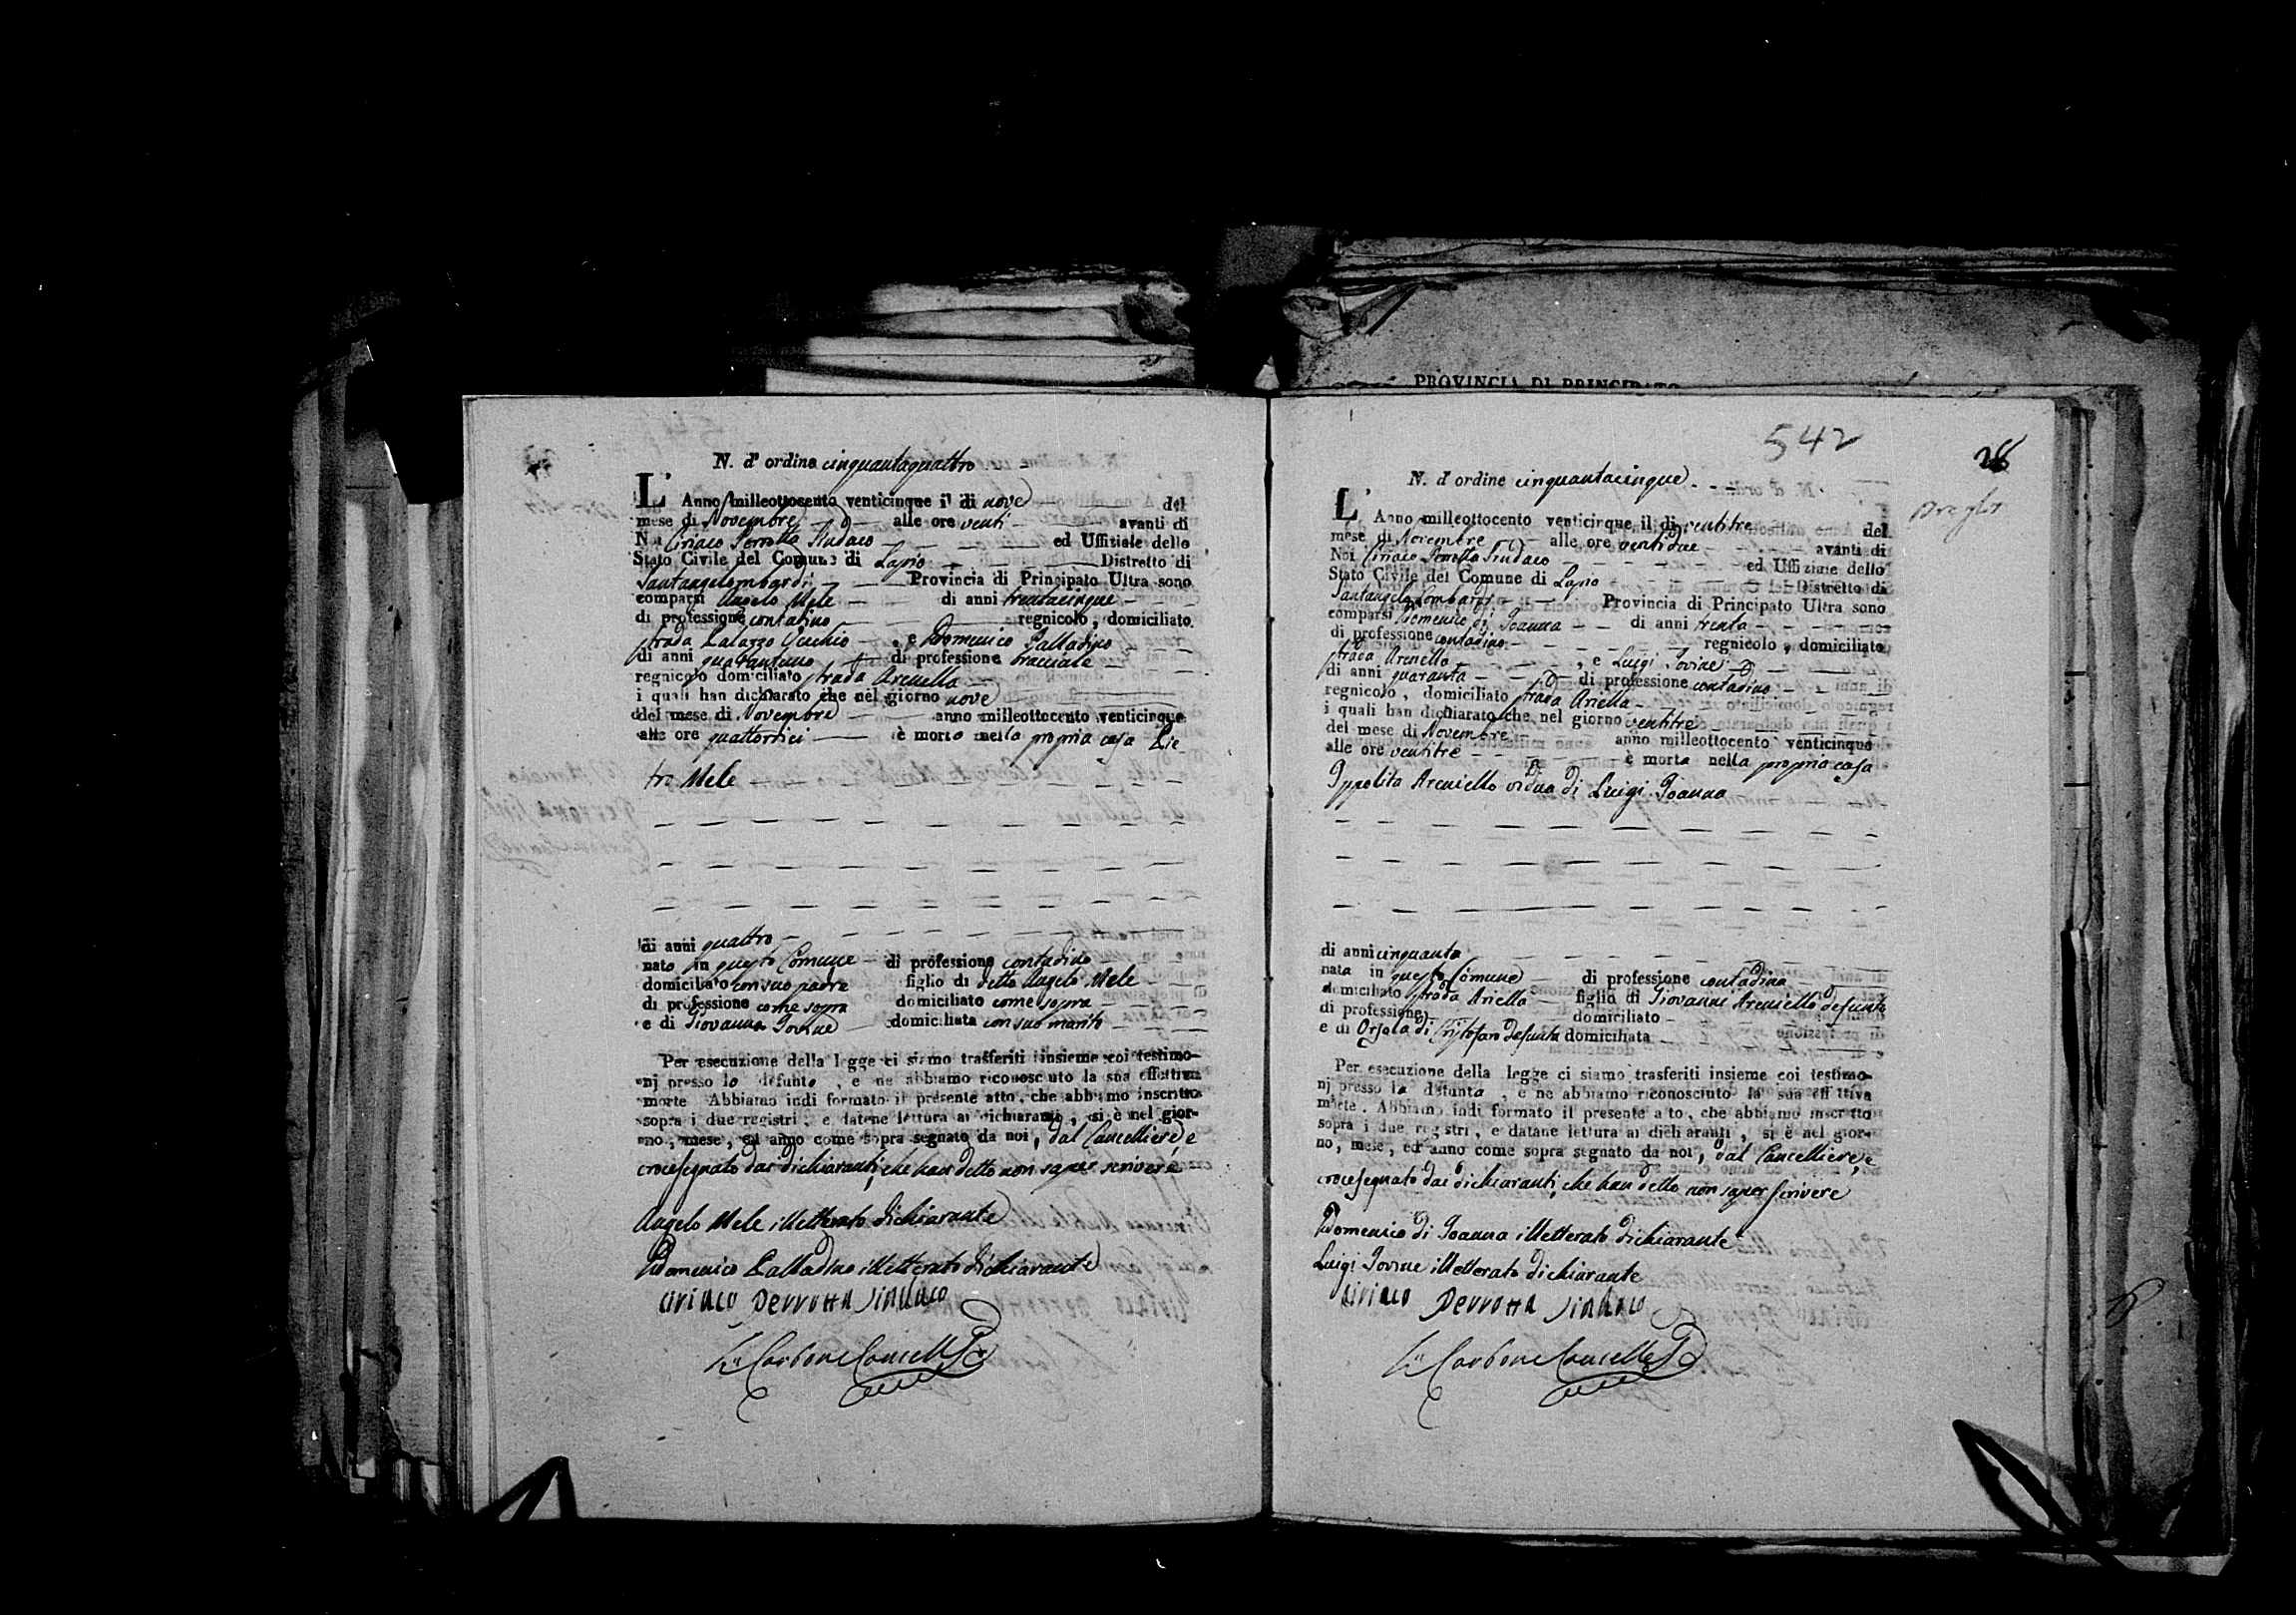 PROVINCIA DI PRINCIPATO
N. d' ordine cinquantaquattro
L' Anno milleottocento venticinque il di nove del
mese di Novembre alle ore venti avanti di
Noi Ciriaco Perrotta Sindaco ed Uffiziale dello
Stato Civile del Comune di Lapio Distretto di
Santangelombardi Provincia di Principato Ultra sono
comparsi Angelo Mele di anni trentacinque
di professione contadino regnicolo, domiciliato
strada Palazzo Vecchio, e Domenico Palladino
di anni quarantuno di professione bracciale
regnicolo domiciliato strada Arenella
i quali han dichiarato che nel giorno nove
del mese di Novembre anno milleottocento venticinque
alle ore quattordici è morto nella propria casa Pie
tro Mele
di anni quattro
nato in questo Comune di professione contadino
domiciliato con suo padre figlio di detto Angelo Mele
di professione come sopra domiciliato come sopra
e di Giovanna Iovine domiciliata con suo marito
Per esecuzione della legge ci siamo trasferiti insieme coi testimo-
nj presso lo defunto, e ne abbiamo riconosciuto la sua effettiva
morte Abbiamo indi formato il presente atto, che abbiamo inscritto
sopra i due registri, e datane lettura ai dichiaranti, si è nel gior-
no, mese, ed anno come sopra segnato da noi, dal Cancelliere, e
crocesegnato dai dichiaranti, che han detto non saper scrivere
Angelo Mele illetterato dichiarante
Domenico Palladino illetterato dichiarante
Ciriaco Perrotta Sindaco
Carbone Cancelle
542
28
N. d' ordine cinquantacinque
L' Anno milleottocento venticinque il di ventitre del
mese di Novembre alle ore ventidue avanti di
Noi Ciriaco Perrotta Sindaco ed Uffiziale dello
Stato Civile del Comune di Lapio Distretto di
Santangelo Lombardi Provincia di Principato Ultra sono
comparsi Domenico di Ioanna di anni trenta
di professione contadino regnicolo, domiciliato
strada Arenella, e Luigi Iovine
di anni quaranta di professione contadino
regnicolo, domiciliato strada Ariella
i quali han dichiarato che nel giorno ventitre
del mese di Novembre anno milleottocento venticinque
alle ore ventitre è morta nella propria casa
Ippolita Areniello vidua di Luigi Ioanna
di anni cinquanta
nata in questo Comune di professione contadina
domiciliato strada Ariella figlio di Giovanni Areniello defunto
di professione domiciliato
e di Orsola di Cristofaro defunta domiciliata
Per esecuzione della legge ci siamo trasferiti insieme coi testimo-
nj presso la defunta, e ne abbiamo riconosciuto la sua effettiva
morte. Abbiamo indi formato il presente atto, che abbiamo inscritto
sopra i due registri, e datane lettura ai dichiaranti, si è nel gior-
no, mese, ed anno come sopra segnato da noi, dal Cancelliere, e
crocesegnato dai dichiaranti, che han detto non saper scrivere
Domenico di Ioanna illetterato dichiarante
Luigi Iovine illetterato dichiarante
Ciriaco Perrotta Sindaco
Carbone Cancelle